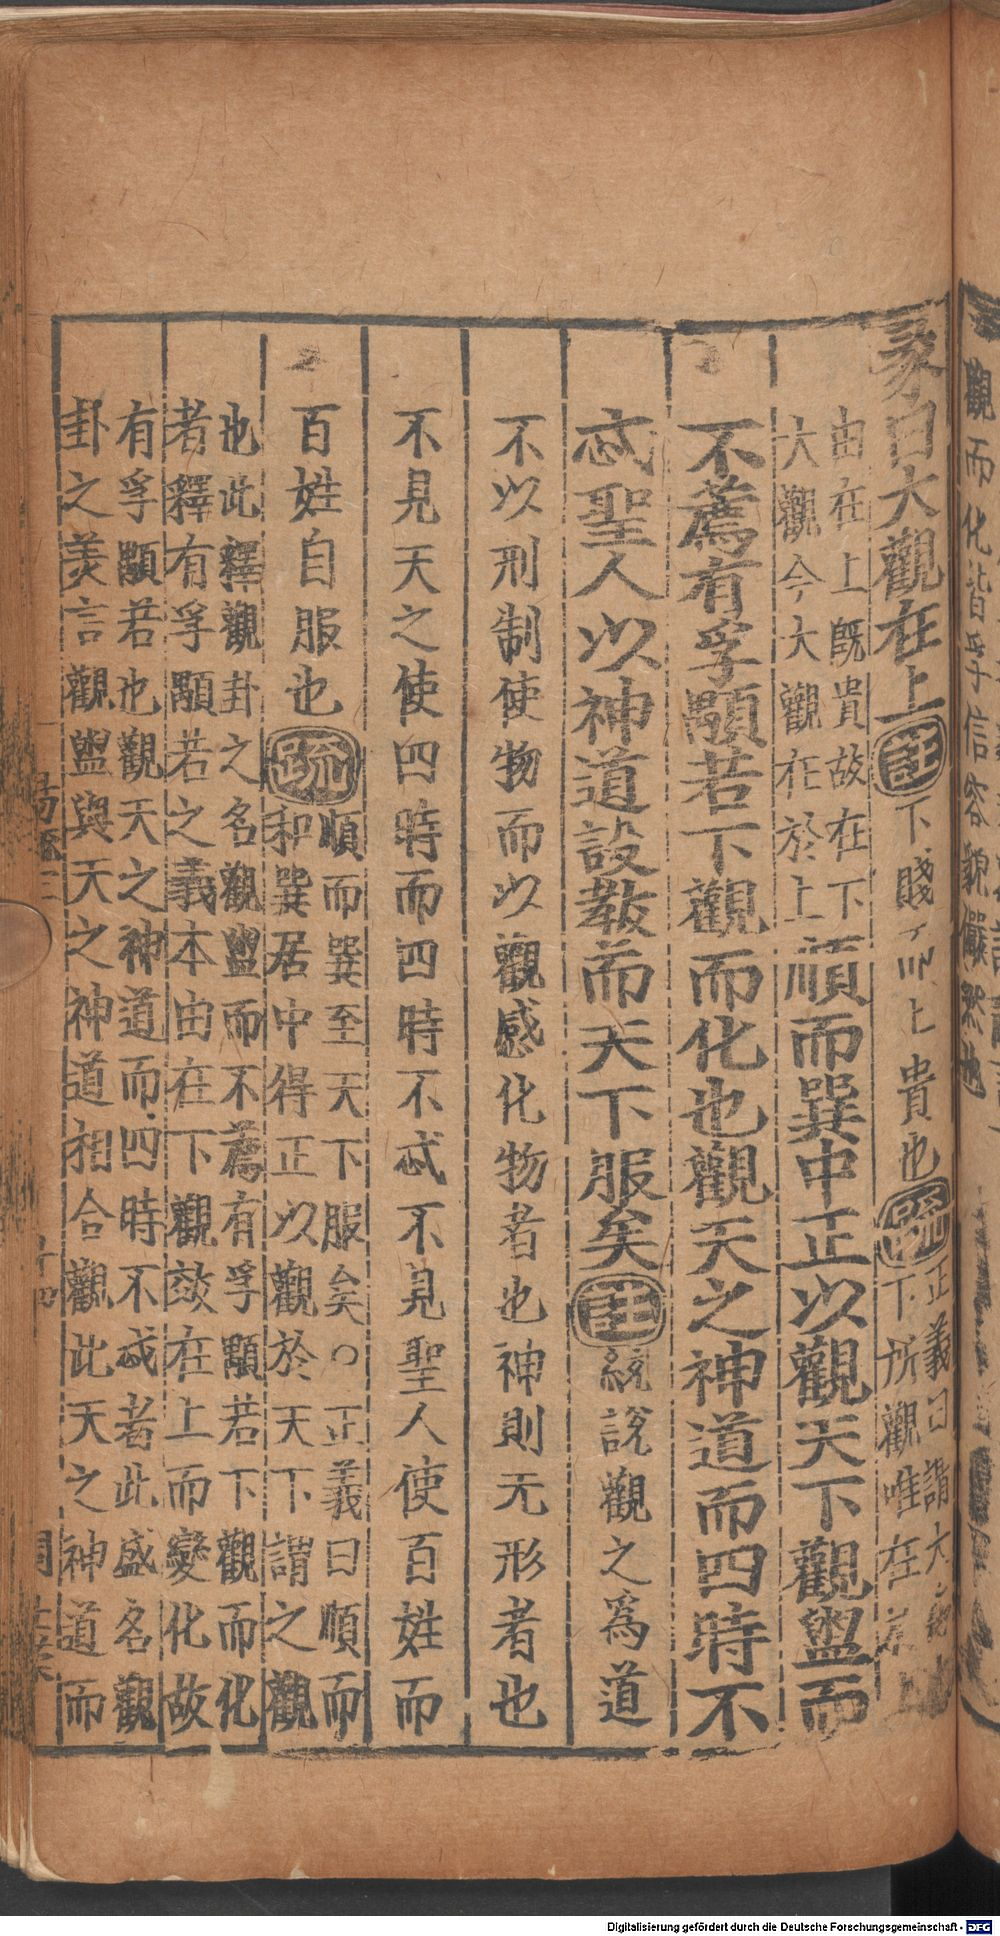 觀而化皆孚信容貌儼然也
彖曰大觀在上註下賤而上貴也疏正義曰謂大
下所觀唯在
由在上既貴故在下
大觀今大觀在於上
順而巽中正以觀天下觀盥而
不薦有孚顒若下觀而化也觀天之神道而四時不
忒聖人以神道設教而天下服矣註統說觀之為道
不以刑制使物而以觀感化物者也神則无形者也
不見天之使四時而四時不忒不見聖人使百姓而
百姓自服也疏順而巽至天下服矣○正義曰順而
和巽居中得正以觀於天下謂之觀
也此釋觀卦之名觀盥而不薦有孚顒若下觀而化
者釋有孚顒若之義本由在下觀效在上而變化故
有孚顒若也觀天之神道而四時不忒者此盛名觀
卦之美言觀盥與天之神道相合觀此天之神道而
Digitalisierung gefördert durch die Deutsche Forschungsgemeinschaft - DFG